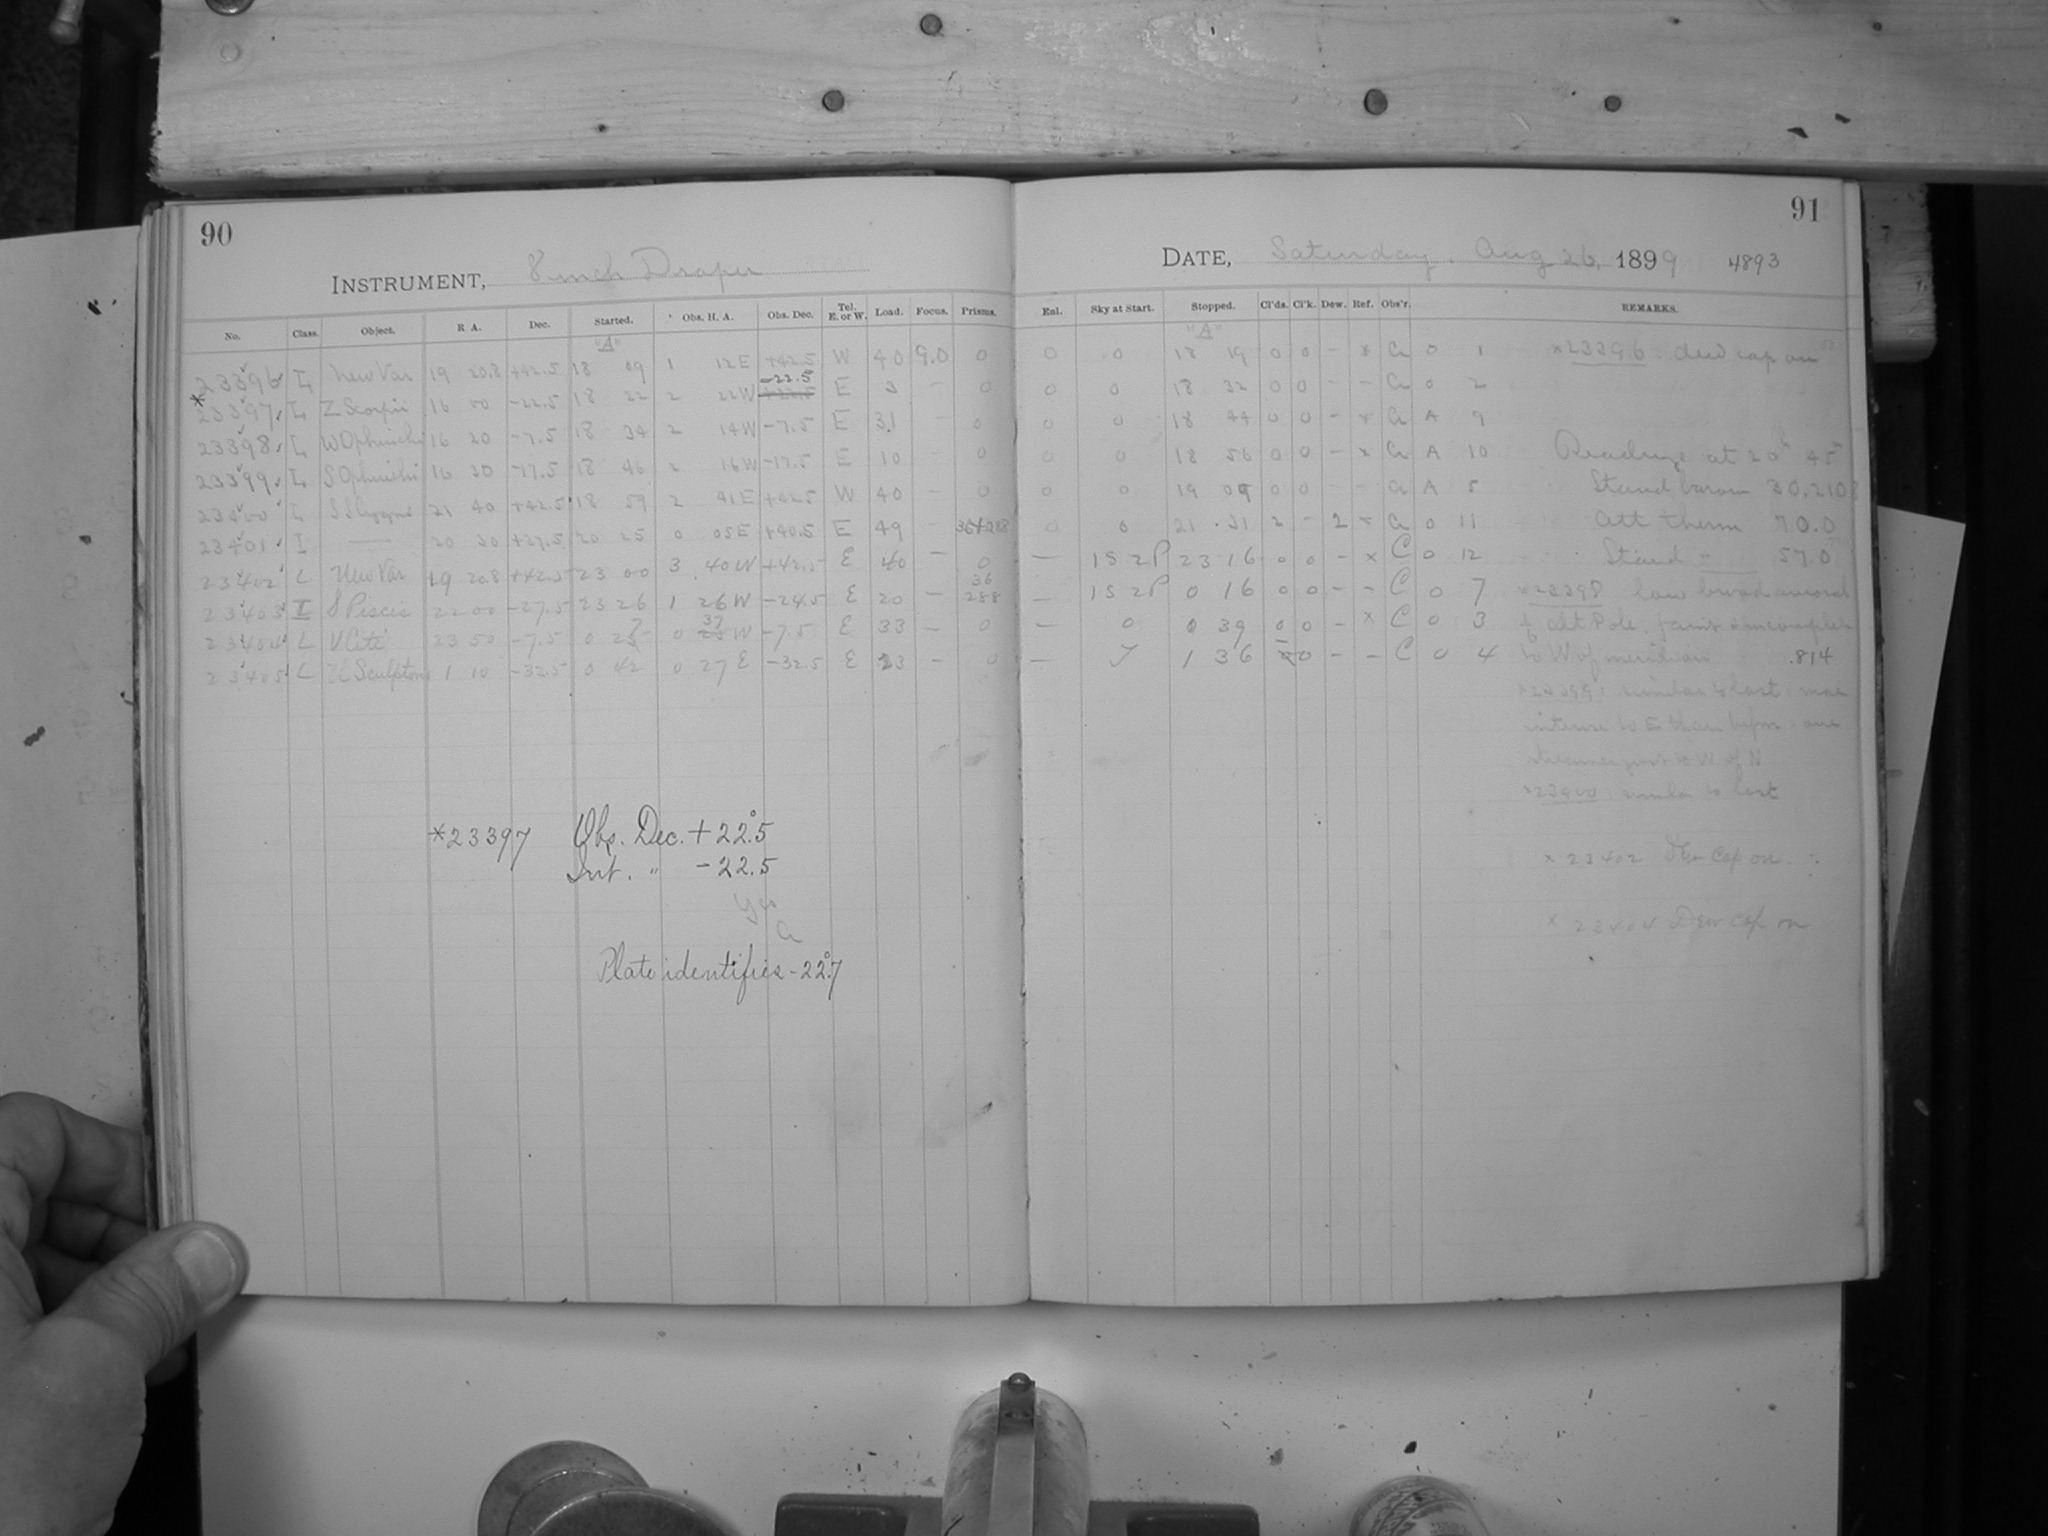 90
INSTRUMENT, 8 inch Draper
No. Class. Object. R A. Dec. Started. Obs. H. A. Obs. Dec. Tel. E. or W. Load. Focus. Prisms.
"A"
23396 L New Var 19 20.8 +42.5 18 09 1 12 E +42.5 W 40 9.0 0
-22.5
*23397 L Z Scorpii 16 00 -22.5 18 22 2 22 W +22.5 E 3 - 0
23398 L W Ophiuchi 16 20 -7.5 18 34 2 14 W -7.5 E 31 - 0
23399 L S Ophiuchi 16 30 -17.5 18 46 2 16 W -17.5 E 10 - 0
23400 L S Cygni 21 40 +42.5 18 59 2 41 E +42.5 W 40 - 0
23401 I — 20 30 +37.5 20 25 0 05 E +40.5 E 49 - 36+288
23402 L New Var 19 20.8 +42.5 23 00 3 40 W +42.5 E 40 - 0
23403 I S Piscis 22 00 -27.5 23 26 1 26 W -24.5 E 20 - 36 288
23404 L V Ceti 23 50 -7.5 0 0 37 W -7.5 E 33 - 0
23405 L Sculptoris 1 10 -32.5 0 42 0 27 E -32.5 E 23 - 0
*23397 Obs. Dec. + 22°.5
Int. " - 22.5
Yes
a
Plate identifies - 22°.7
91
DATE, Saturday, Aug 26, 1899 4893
Enl. Sky at Start. Stopped. Cl'ds. Cl'k. Dew. Ref. Obs'r. REMARKS.
"A"
0 0 18 19 0 0 - x a 0 1 x23396: dew cap on
0 0 18 32 0 0 - - a 0 2
0 0 18 44 0 0 - x a A 9
0 0 18 56 0 0 - x a A 10 Readings at 20h 45m
0 0 19 09 0 0 - - a A 5 Stand barom 30.210
0 0 21 31 2 - 2 x a 0 11 att therm 70.0
— 1S 2P 23 16 0 0 - x C 0 12 Stand - 57.0
— 1S 2P 0 16 0 0 - - C 0 7 x23398 low broad auroral
— 0 0 39 0 0 - x C 0 3 alt Pole, faint & incomplete
— 1 36 0 - - C 0 4 to W of meridian .814
x23399: similar to last: more
intense to E than before one
streamer just to W of N
x23400: similar to last
x 23402 Dew cap on.
x 23404 Dew cap on